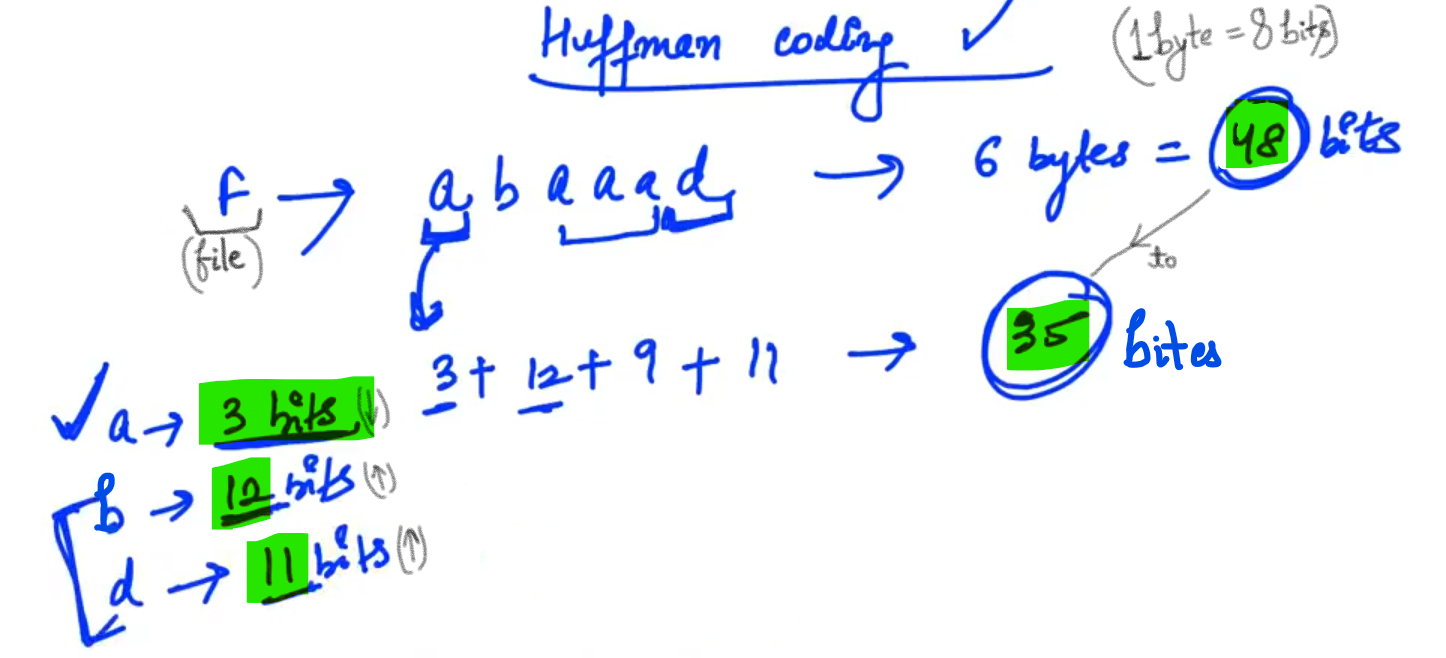 Huffman coding ✓ (1 byte = 8 bits)
f → a b a a a d → 6 bytes = 48 bits
(file)
to
3 + 12 + 9 + 11 → 35 bites
✓ a → 3 bits (↓)
b → 12 bits (↑)
d → 11 bits (↑)